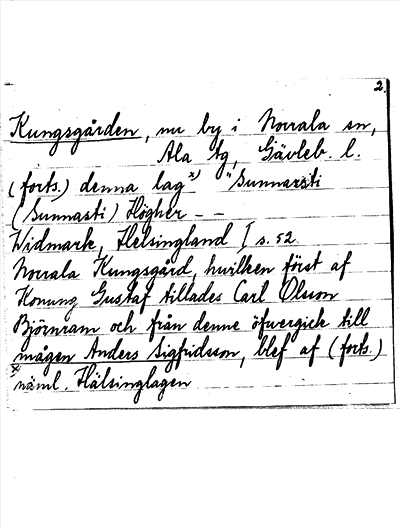 2.
Kungsgården, nu by i Norrala sn,
Ala tg, Gävleb. l.
(forts.) denna lag x) "Sunnarsti
(Sunnasti) Högher – –
Widmark, Helsingland I s. 52.
Norrala Kungsgård, hvilken först af
Konung Gustaf tillades Carl Olsson
Björnram och från denne öfvergick till
mågen Anders Sigfridsson, blef af (forts.)
x) näml. Hälsinglagen